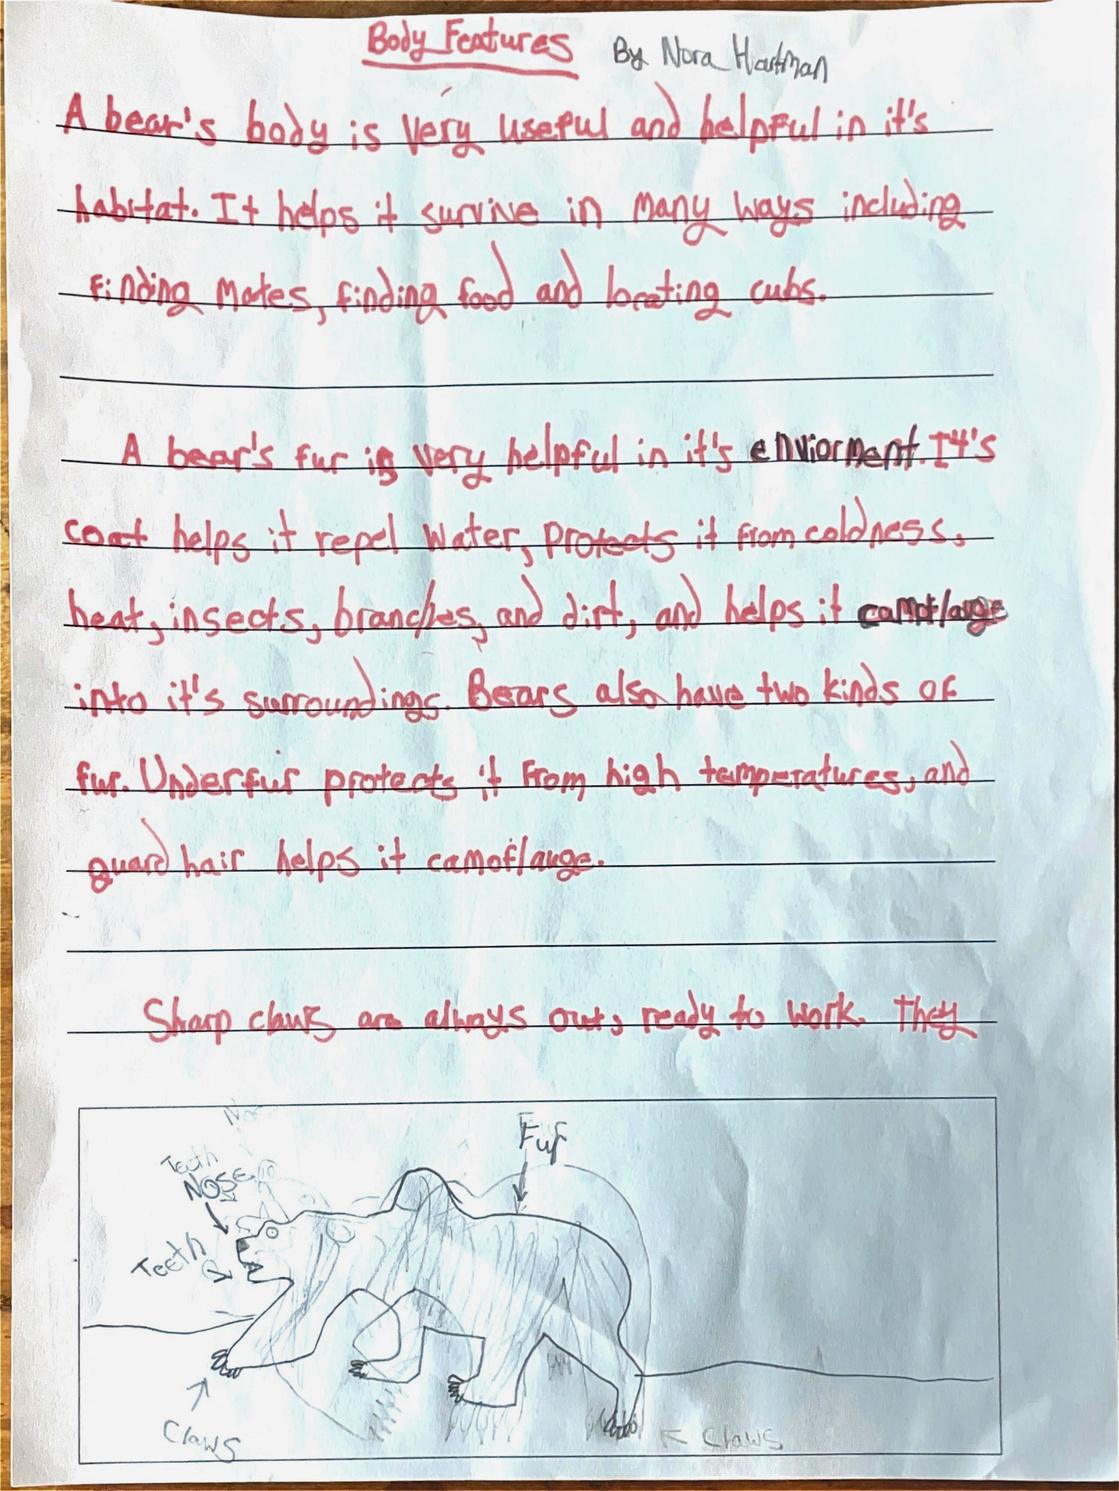 Body Features By Nora Hartman
A bear's body is very useful and helpful in it's
habitat. It helps it survive in many ways including
finding mates, finding food and locating cubs.
A bear's fur is very helpful in it's enviorment. It's
coat helps it repel water, protects it from coldness,
heat, insects, branches, and dirt, and helps it camoflauge
into it's surroundings. Bears also have two kinds of
fur. Underfur protects it from high temperatures, and
guard hair helps it camoflauge.
Sharp claws are always out, ready to work. They
Fur
Teeth
Nose
Teeth
Claws
Claws